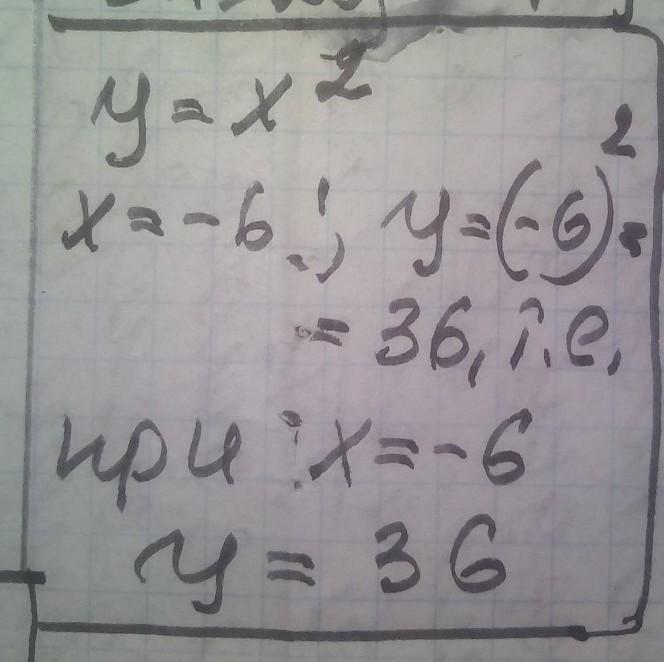 y = x²
x = -6; y = (-6)² =
= 36, т.е.
при x = -6
y = 36